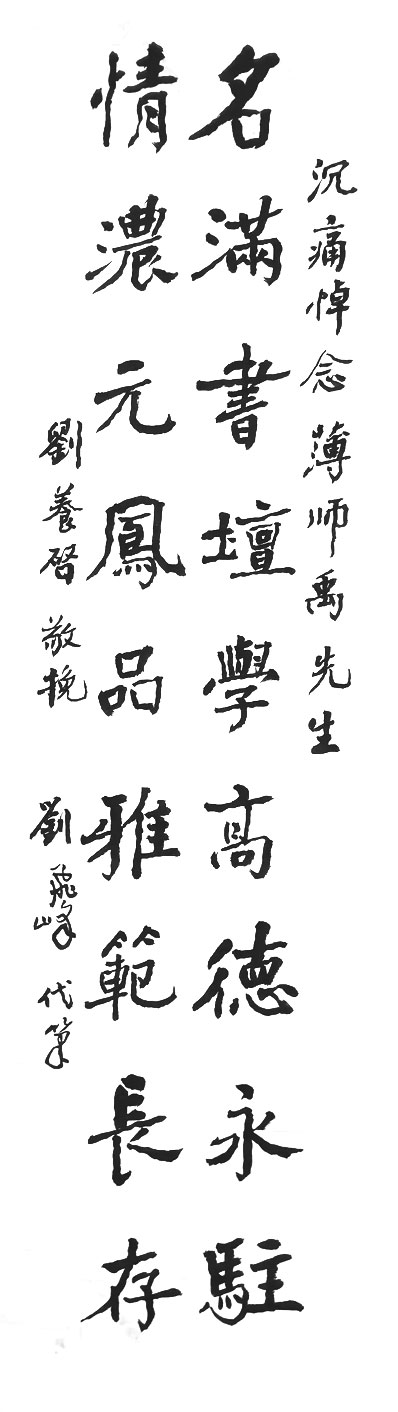 沉痛悼念薄师禹先生
名滿書壇學高德永駐
情濃元鳳品雅範長存
劉養啓敬挽
劉飛峰代筆